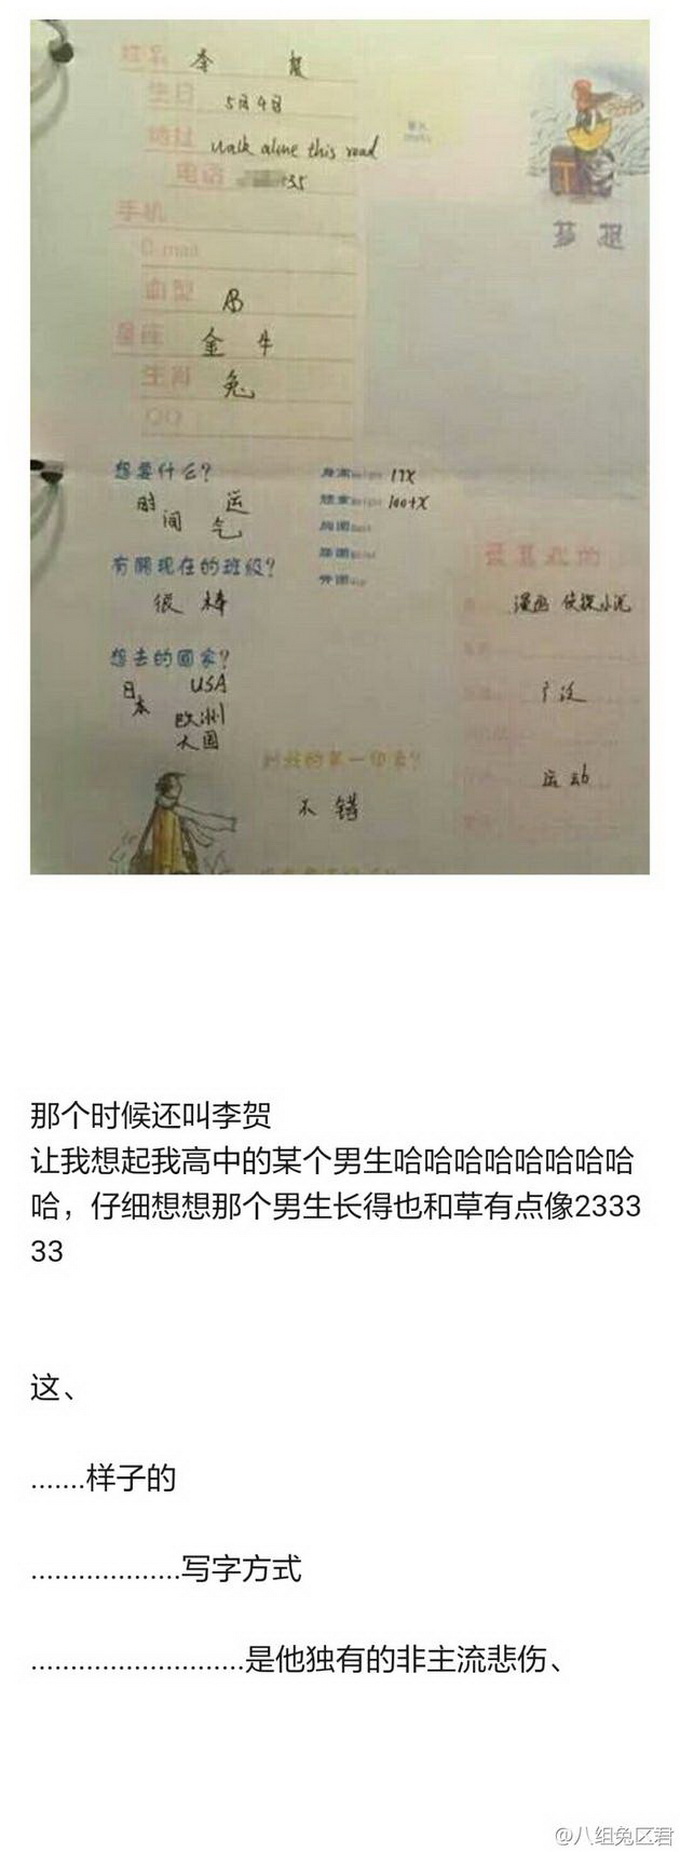 姓名 李 贺
生日 5月4日
地址 walk alone this road
电话 35
手机
E-mail
血型 B
星座 金 牛
生肖 兔
QQ
梦 想
想要什么?
时间 运气
身高 17X
体重 100+X
胸围
腰围
有关现在的班级?
很 棒
想去的国家?
日本 USA
欧洲
大国
最喜欢的
漫画 侦探小说
广泛
运动
对我的第一印象?
不 错
那个时候还叫李贺
让我想起我高中的某个男生哈哈哈哈哈哈哈哈
哈，仔细想想那个男生长得也和草有点像2333
33
这、
.......样子的
...................写字方式
...........................是他独有的非主流悲伤、
@八组兔区君